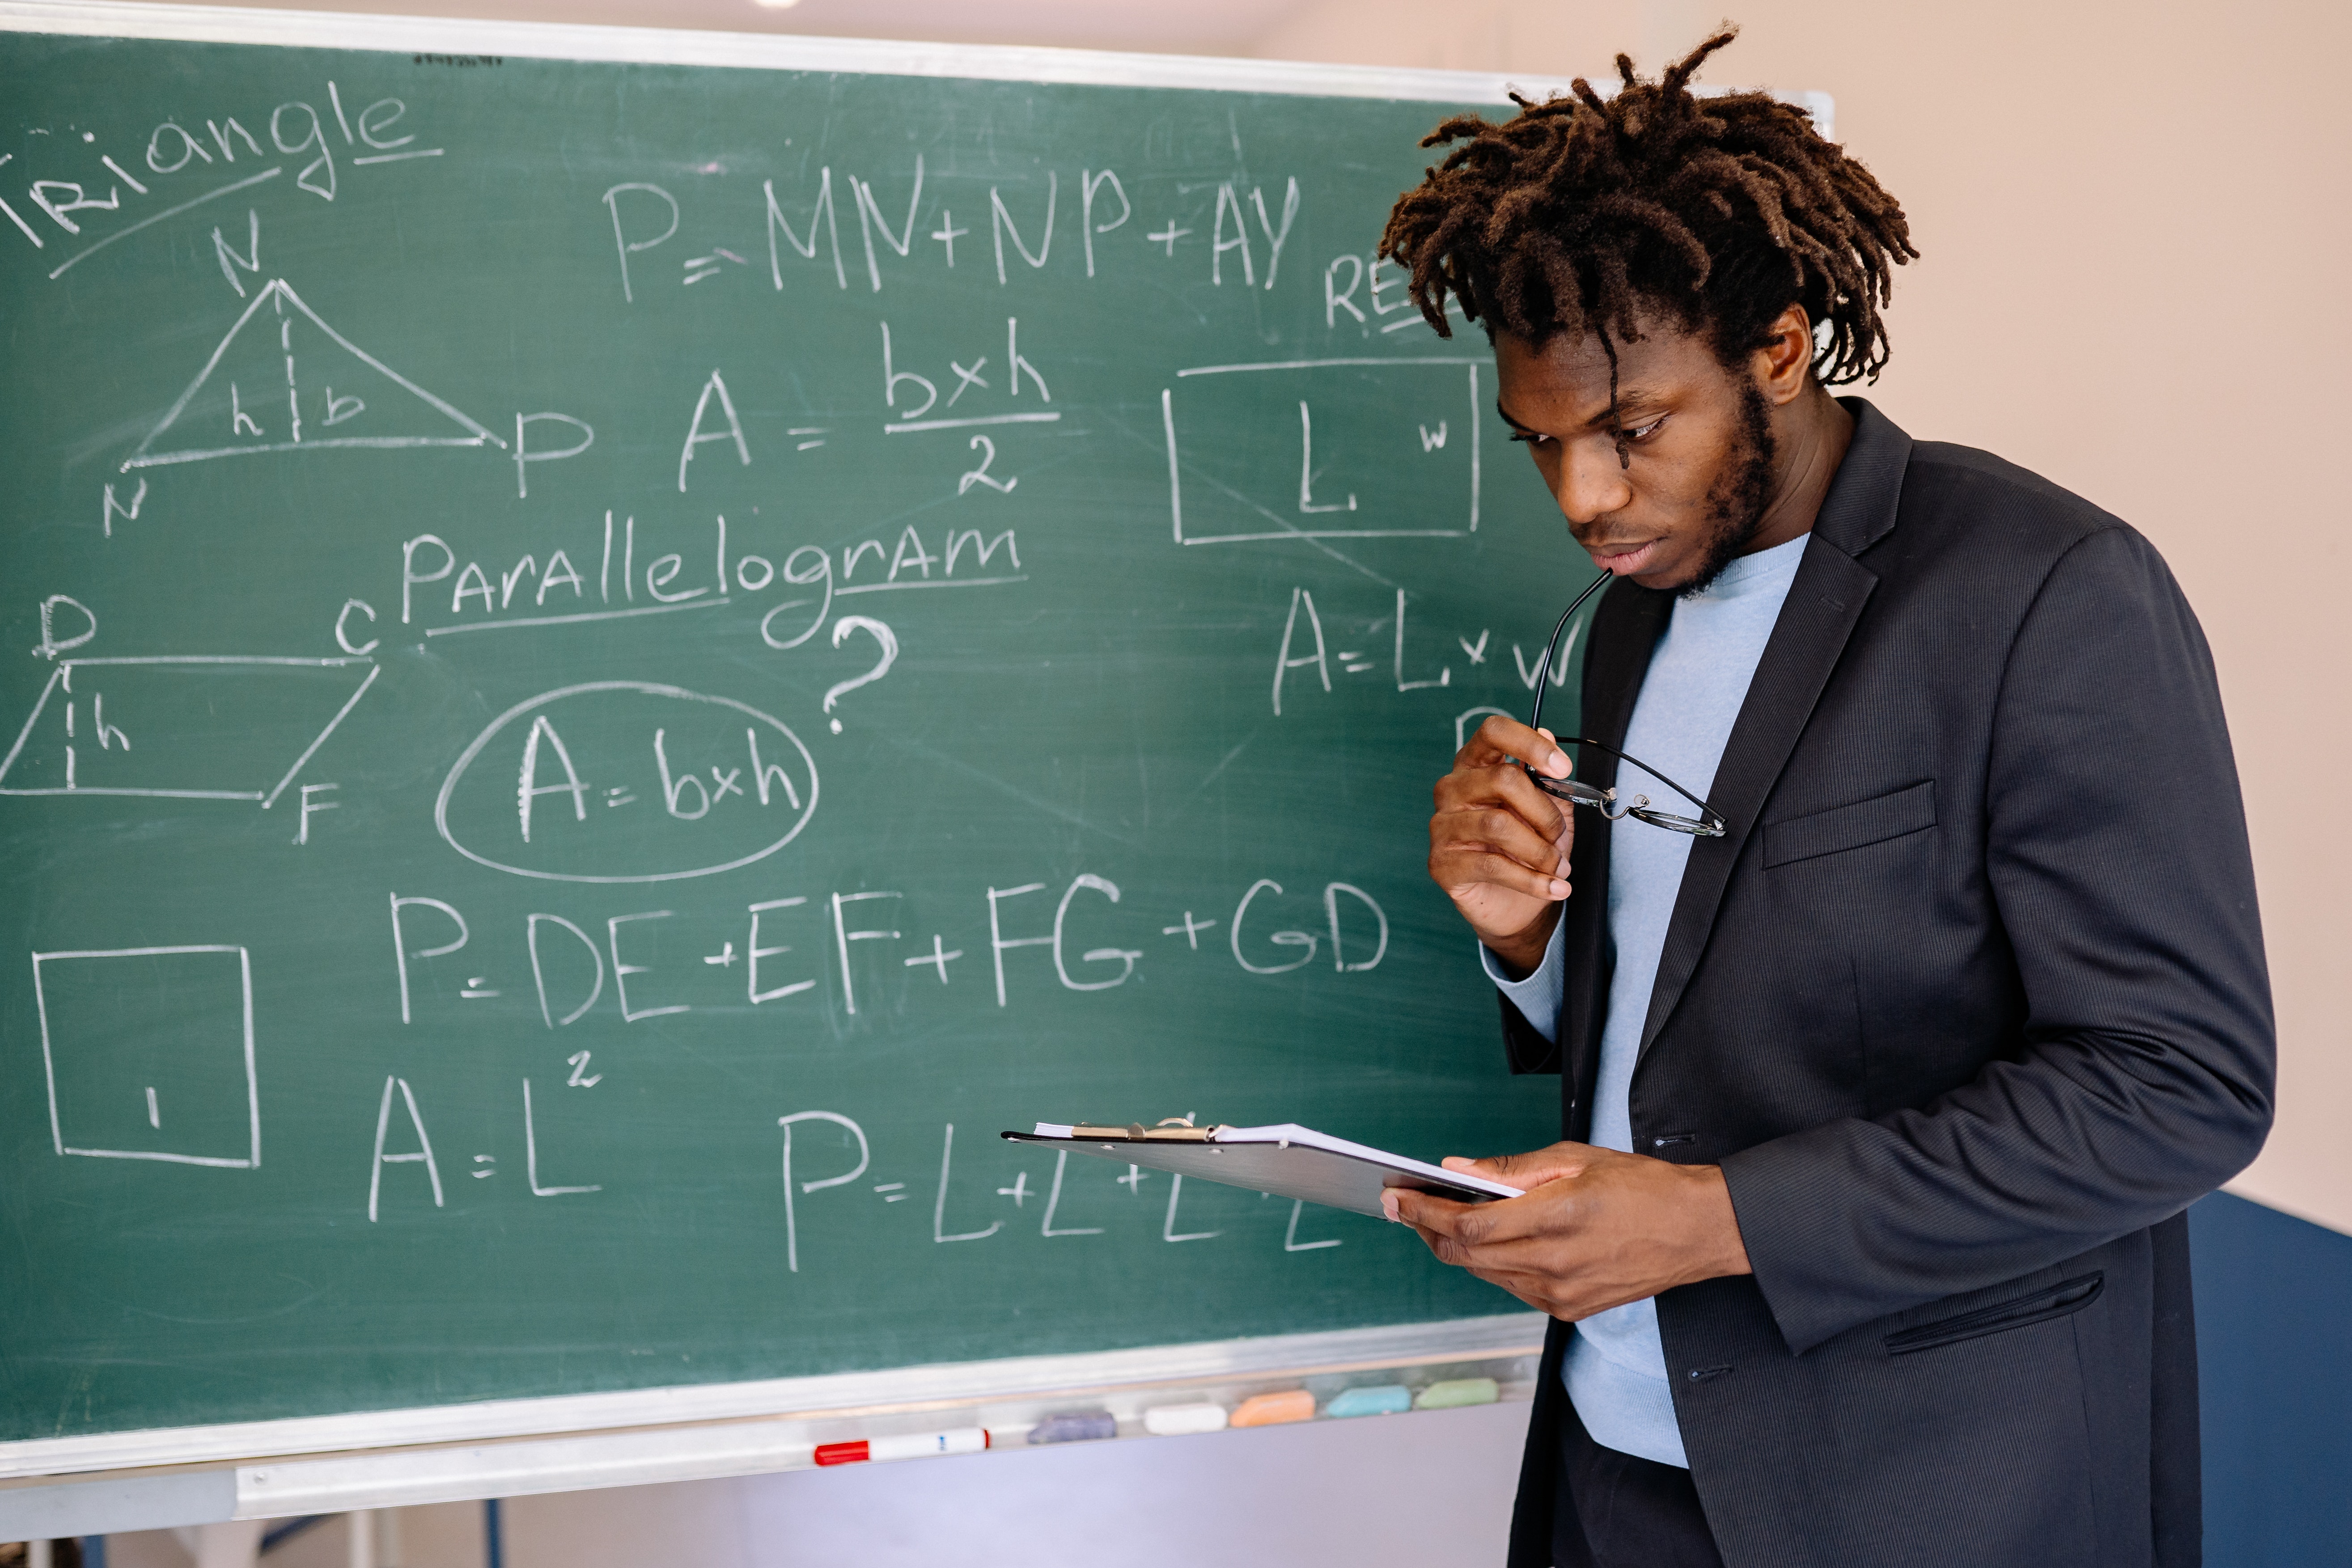 TRiangle
N
h b
N
P
P = MN + NP + AY
A = b x h / 2
RE
L w
A = L x W
PArAllelogrAm
?
D C
h
F
A = b x h
P = DE + EF + FG + GD
l
A = L²
P = L + L + L + L